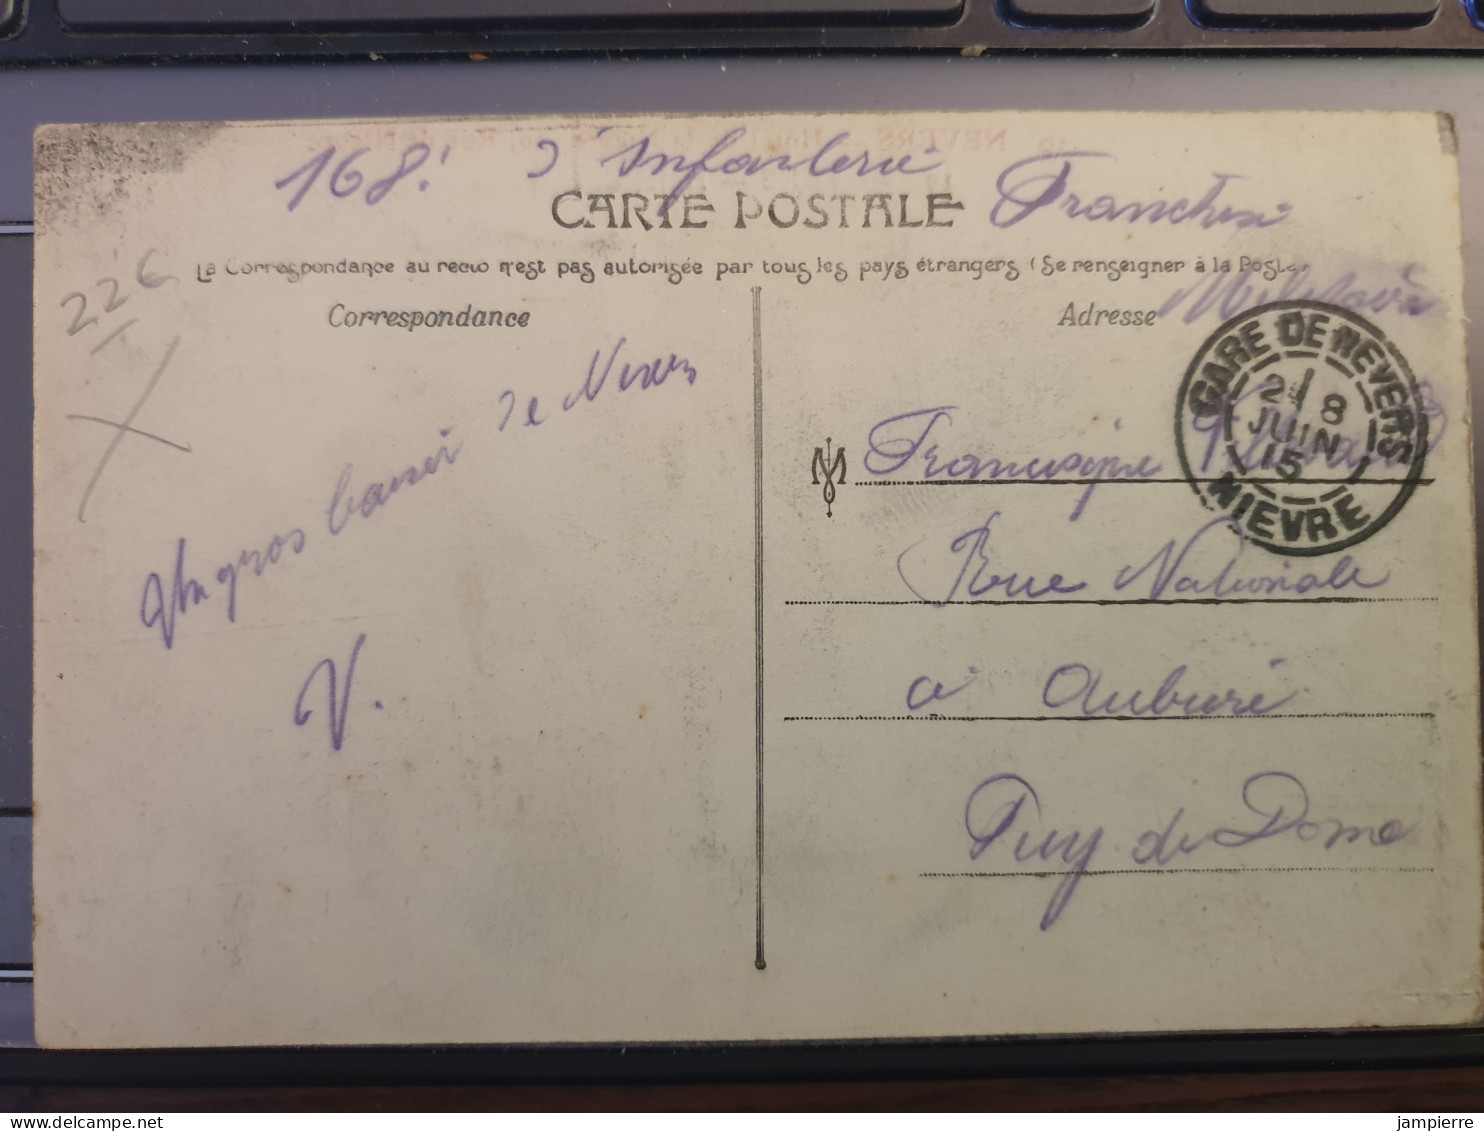 168e d'infanterie
Franchise
Militaire
CARTE POSTALE
La Correspondance au recto n'est pas autorisée par tous les pays étrangers (Se renseigner à la Poste)
Correspondance
Adresse
22€
Un gros baiser de Nevers
V.
GARE DE NEVERS
21 8
JUIN
15
NIEVRE
Rue Nationale
à Aubière
Puy de Dome
delcampe.net
jampierre